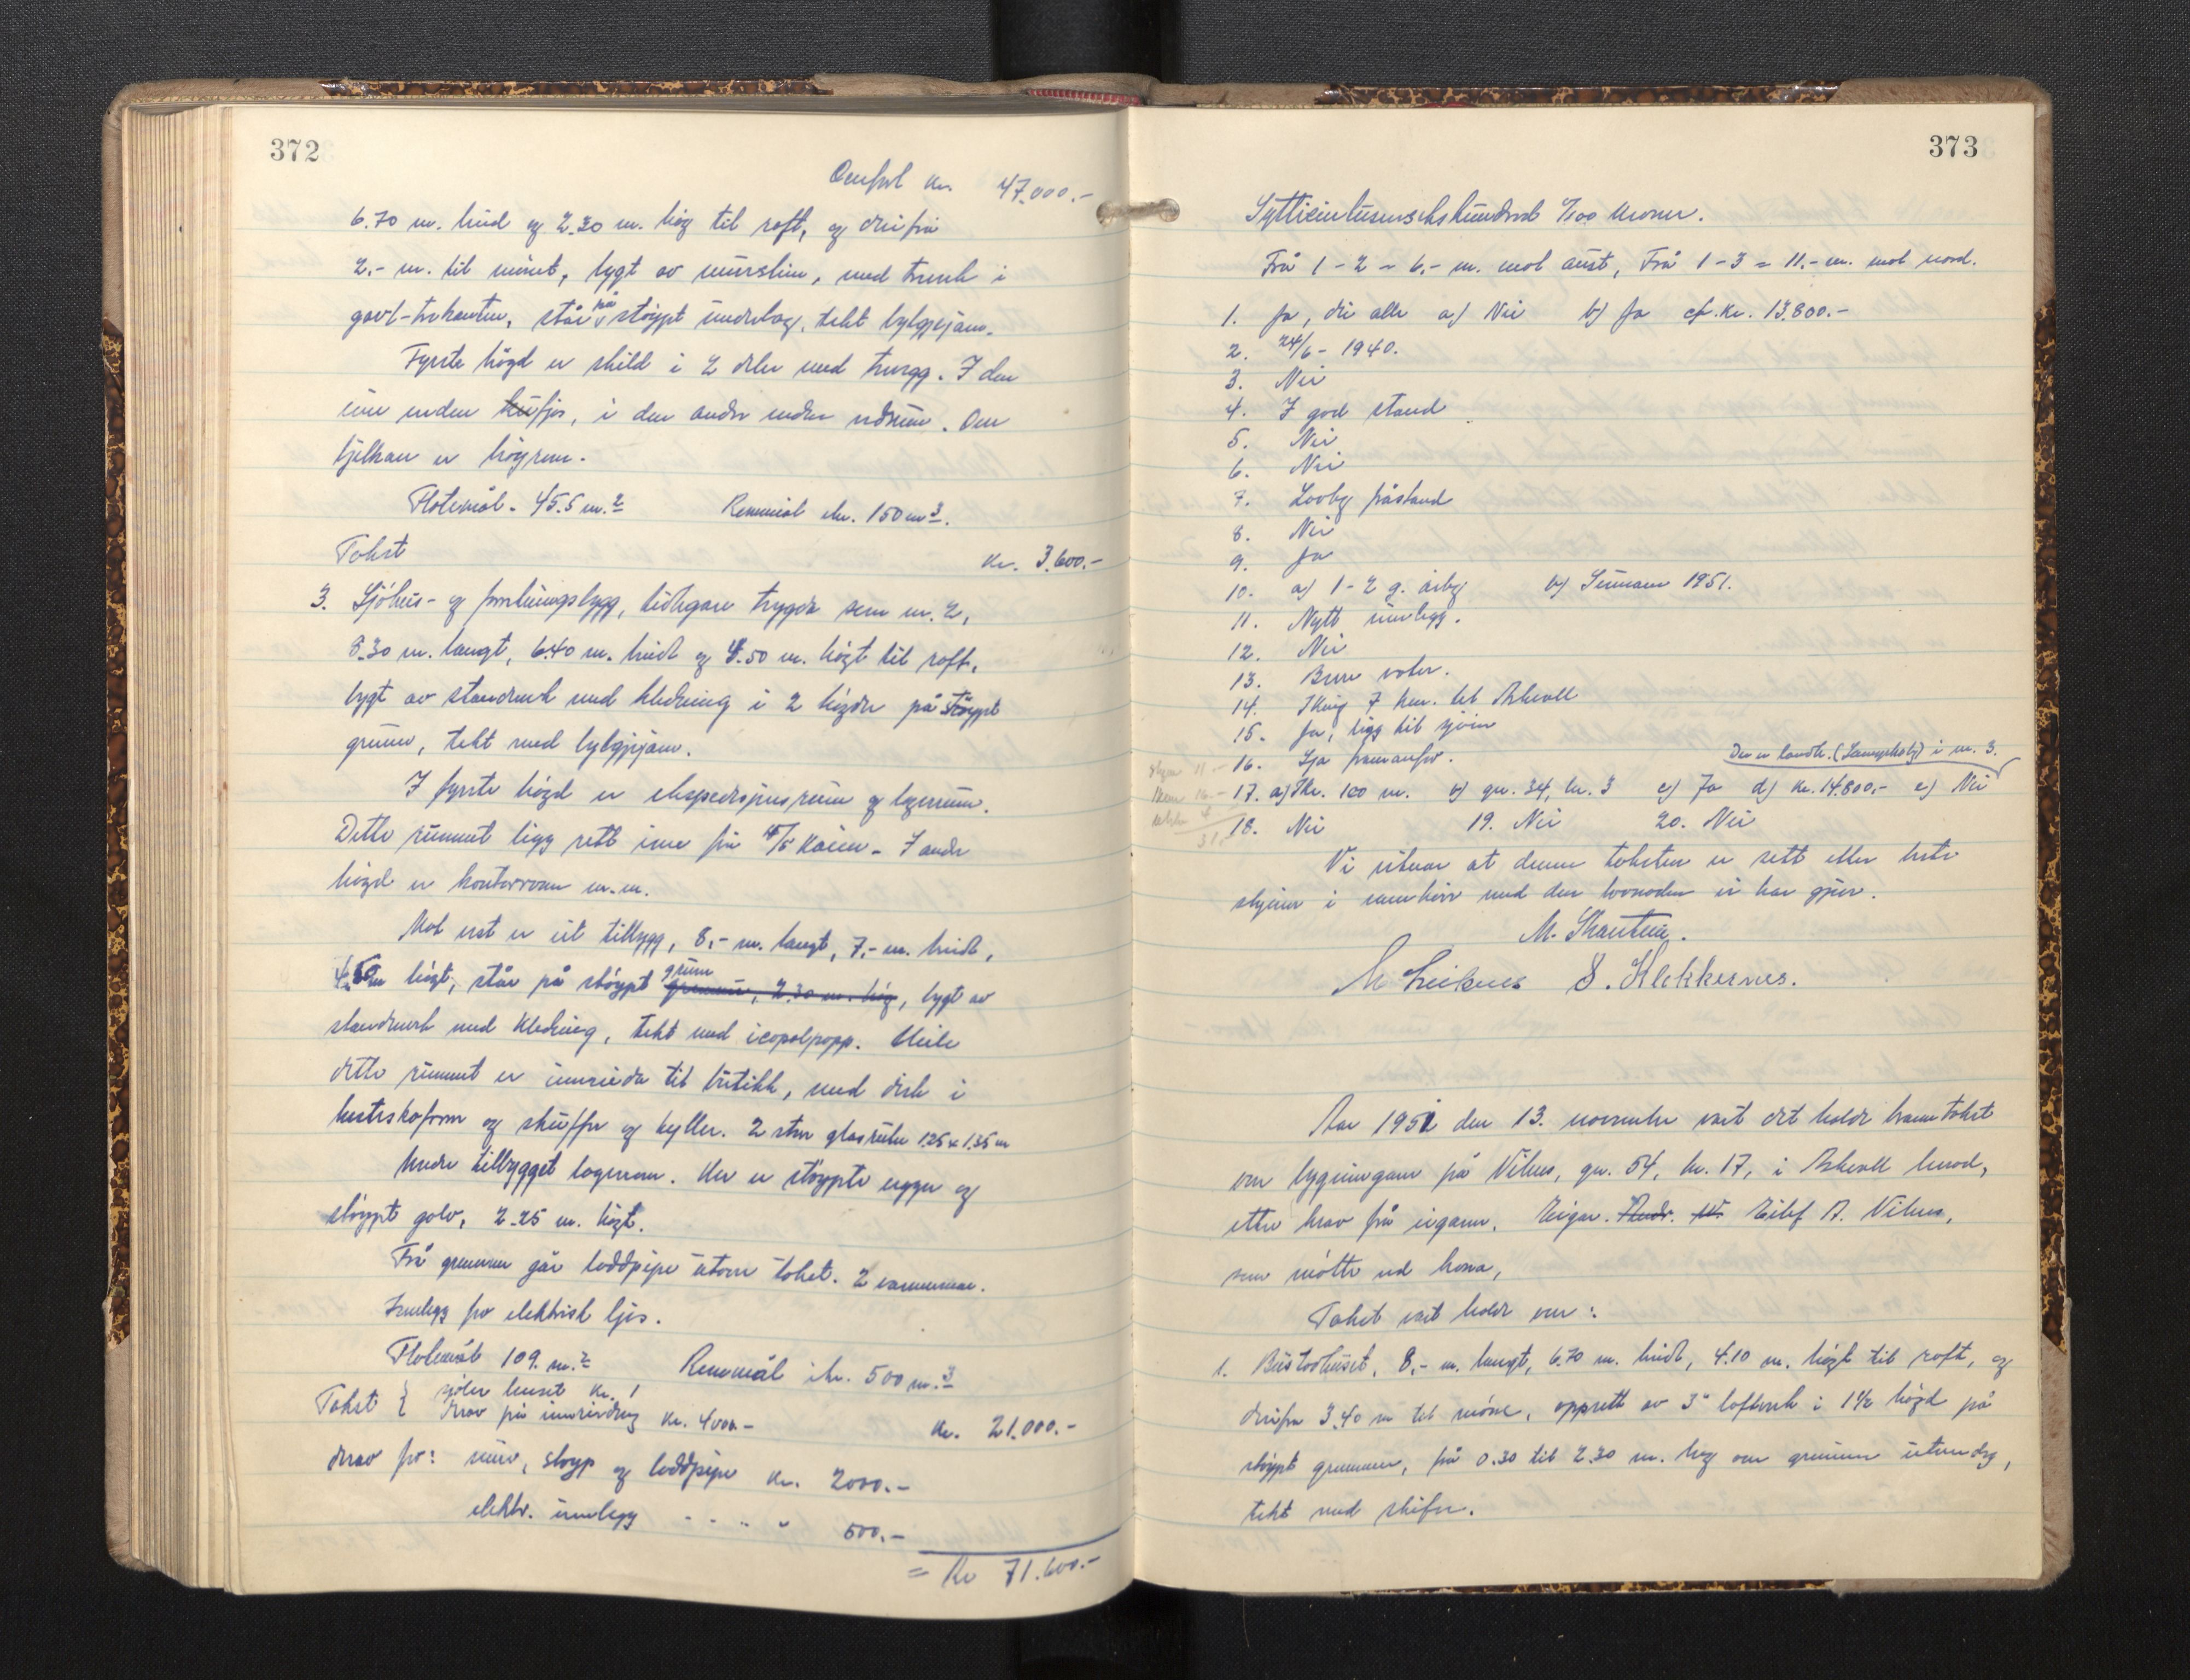 372
Overført kr. 47.000.-
6.70 m. breid og 2.30 m. høg til raft, og derifrå
2.- m. til mønet, bygt av mursten, med treverk i
gavl-trekanten, står på støypt underlag, tekt bylgjejarn.
Fyrste høgd er skild i 2 deler med trevegg. I den
eine enden kufjos, i den andre enden vedrum. Over
bjelkane er høyrom.
Flatemål - 45.5 m.2 Rommål ikr. 150 m3.
Takst kr. 3.600.-
3. Sjöhus- og forretningsbygg, tidlegare trygda som nr. 2,
8.30 m. langt, 6.40 m. breidt og 4.50 m. högt til raft,
bygt av standverk med kledning i 2 högder på støypt
grunn, tekt med bylgjejarn.
I fyrste högd er ekspedisjonsrum og lagerrum.
Dette rummet ligg rett inne frå D/S kaien - I andre
högd er kontorrom m.m.
Mot vest er eit tilbygg, 8,- m. langt, 7,- m. breidt,
4.50 m högt, står på støypt grunn grunnmur, 2.30 m. høg, bygt av
standverk med kledning, tekt med icopalpapp. Heile
dette rummet er innreida til butikk, med disk i
hesteskoform og skuffer og hyller. 2 store glasruter 1.25 x 1.35 m
Under tilbygget lagerrom. Her er støypte vegger og
støypt golv, 2.25 m. högt.
Frå grunnen går loddpipe utom taket. 2 varmeomnar.
Innlegg for elektrisk ljos.
Flatemål 109. m.2 Rommål ikr. 500 m.3
Takst { sjölve huset kr. 1
Derav på innreiding kr. 4000.- kr. 21.000.-
Derav for: mur, støyp og loddpipe kr. 2000.-
elektr. innlegg - - - " 500.-
= Kr 71.600.-
373
Syttieintusensekshundred 0/100 kroner.
Frå 1 - 2 = 6.- m. mot aust, Frå 1 - 3 = 11.- m. mot nord.
1. Ja, dei alle a) Nei b) Ja cf. kr. 13.800.-
2. 24/6 - 1940.
3. Nei
4. I god stand
5. Nei
6. Nei
7. Lovleg påstand
8. Nei
9. Ja
10. a) 1 - 2 g. årleg b) Sumaren 1951.
11. Nytt innlegg.
12. Nei
13. Berre vatn.
14. Ikring 7 km. til Askvoll
15. Ja, ligg til sjöen
16. Sjå framanfor.
Der er landh. (Samyrkelag) i nr. 3.
17. a) Ikr. 100 m. b) gnr. 34, bnr. 3 c) Ja d) kr. 14.800,- e) Nei
18. Nei 19. Nei 20. Nei
Vi vitnar at denne taksten er sett etter beste
skjönn i samhøve med den lovnaden vi har gjeve.
M. Skantun.
M Leiknes S. Klekkernes.
Aar 1951 den 13. november vart det halde branntakst
over bygningane på Vilnes, gnr. 54, bnr. 17, i Askvoll herad,
etter krav frå eigaren. Eigar. Andr. W. Eilef A. Vilnes,
som mötte ved kona,
Takst vart halde over:
1. Bustadhuset, 8,- m. langt, 6.70 m. breidt, 4.10 m. högt til raft, og
derifrå 3.40 m til möne, oppsett av 3" laftverk i 1 1/2 högd på
støypt grunnmur, frå 0.30 til 2.30 m. høg over grunnen utvendeg,
tekt med skifer.